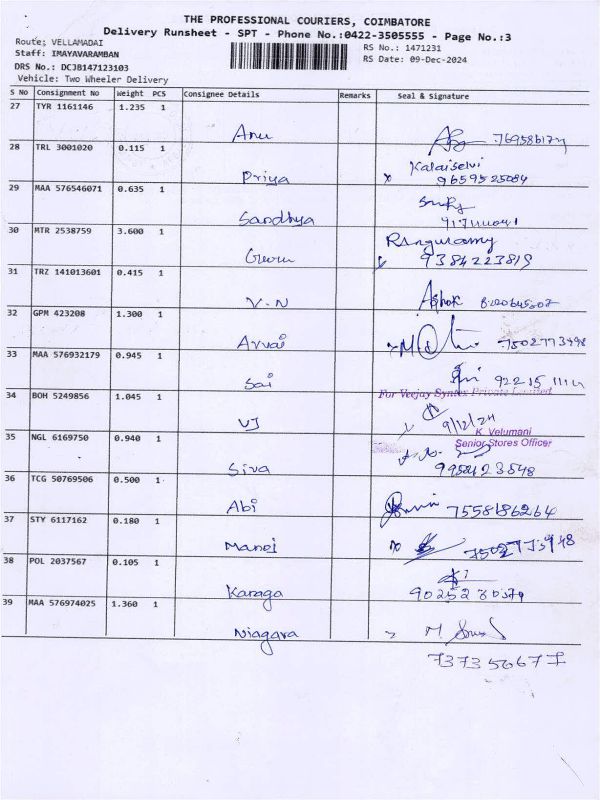 THE PROFESSIONAL COURIERS, COIMBATORE
Delivery Runsheet - SPT - Phone No.:0422-3505555 - Page No.:3
Route: VELLAMADAI
RS No.: 1471231
Staff: IMAYAVARAMBAN
RS Date: 09-Dec-2024
DRS No.: DCJB147123103
Vehicle: Two Wheeler Delivery
S No Consignment No Weight PCS Consignee Details Remarks Seal & Signature
27 TYR 1161146 1.235 1
Anu
28 TRL 3001020 0.115 1 Kalaiselvi
Priya 9659525084
29 MAA 576546071 0.635 1
Sandhya
30 MTR 2538759 3.600 1 Rangusamy
Guru 9384223819
31 TRZ 141013601 0.415 1
V-N Ashok
32 GPM 423208 1.300 1
Arvai 7502773948
33 MAA 576932179 0.945 1
Sai
For Veejay Syntex Private Limited
34 BOH 5249856 1.045 1
VJ 9/12/24
K. Velumani
35 NGL 6169750 0.940 1 Senior Stores Officer
Siva 9952423548
36 TCG 50769506 0.500 1
Abi 7558186264
37 STY 6117162 0.180 1
Manoj 7502773948
38 POL 2037567 0.105 1
Karaga
39 MAA 576974025 1.360 1
Niagara